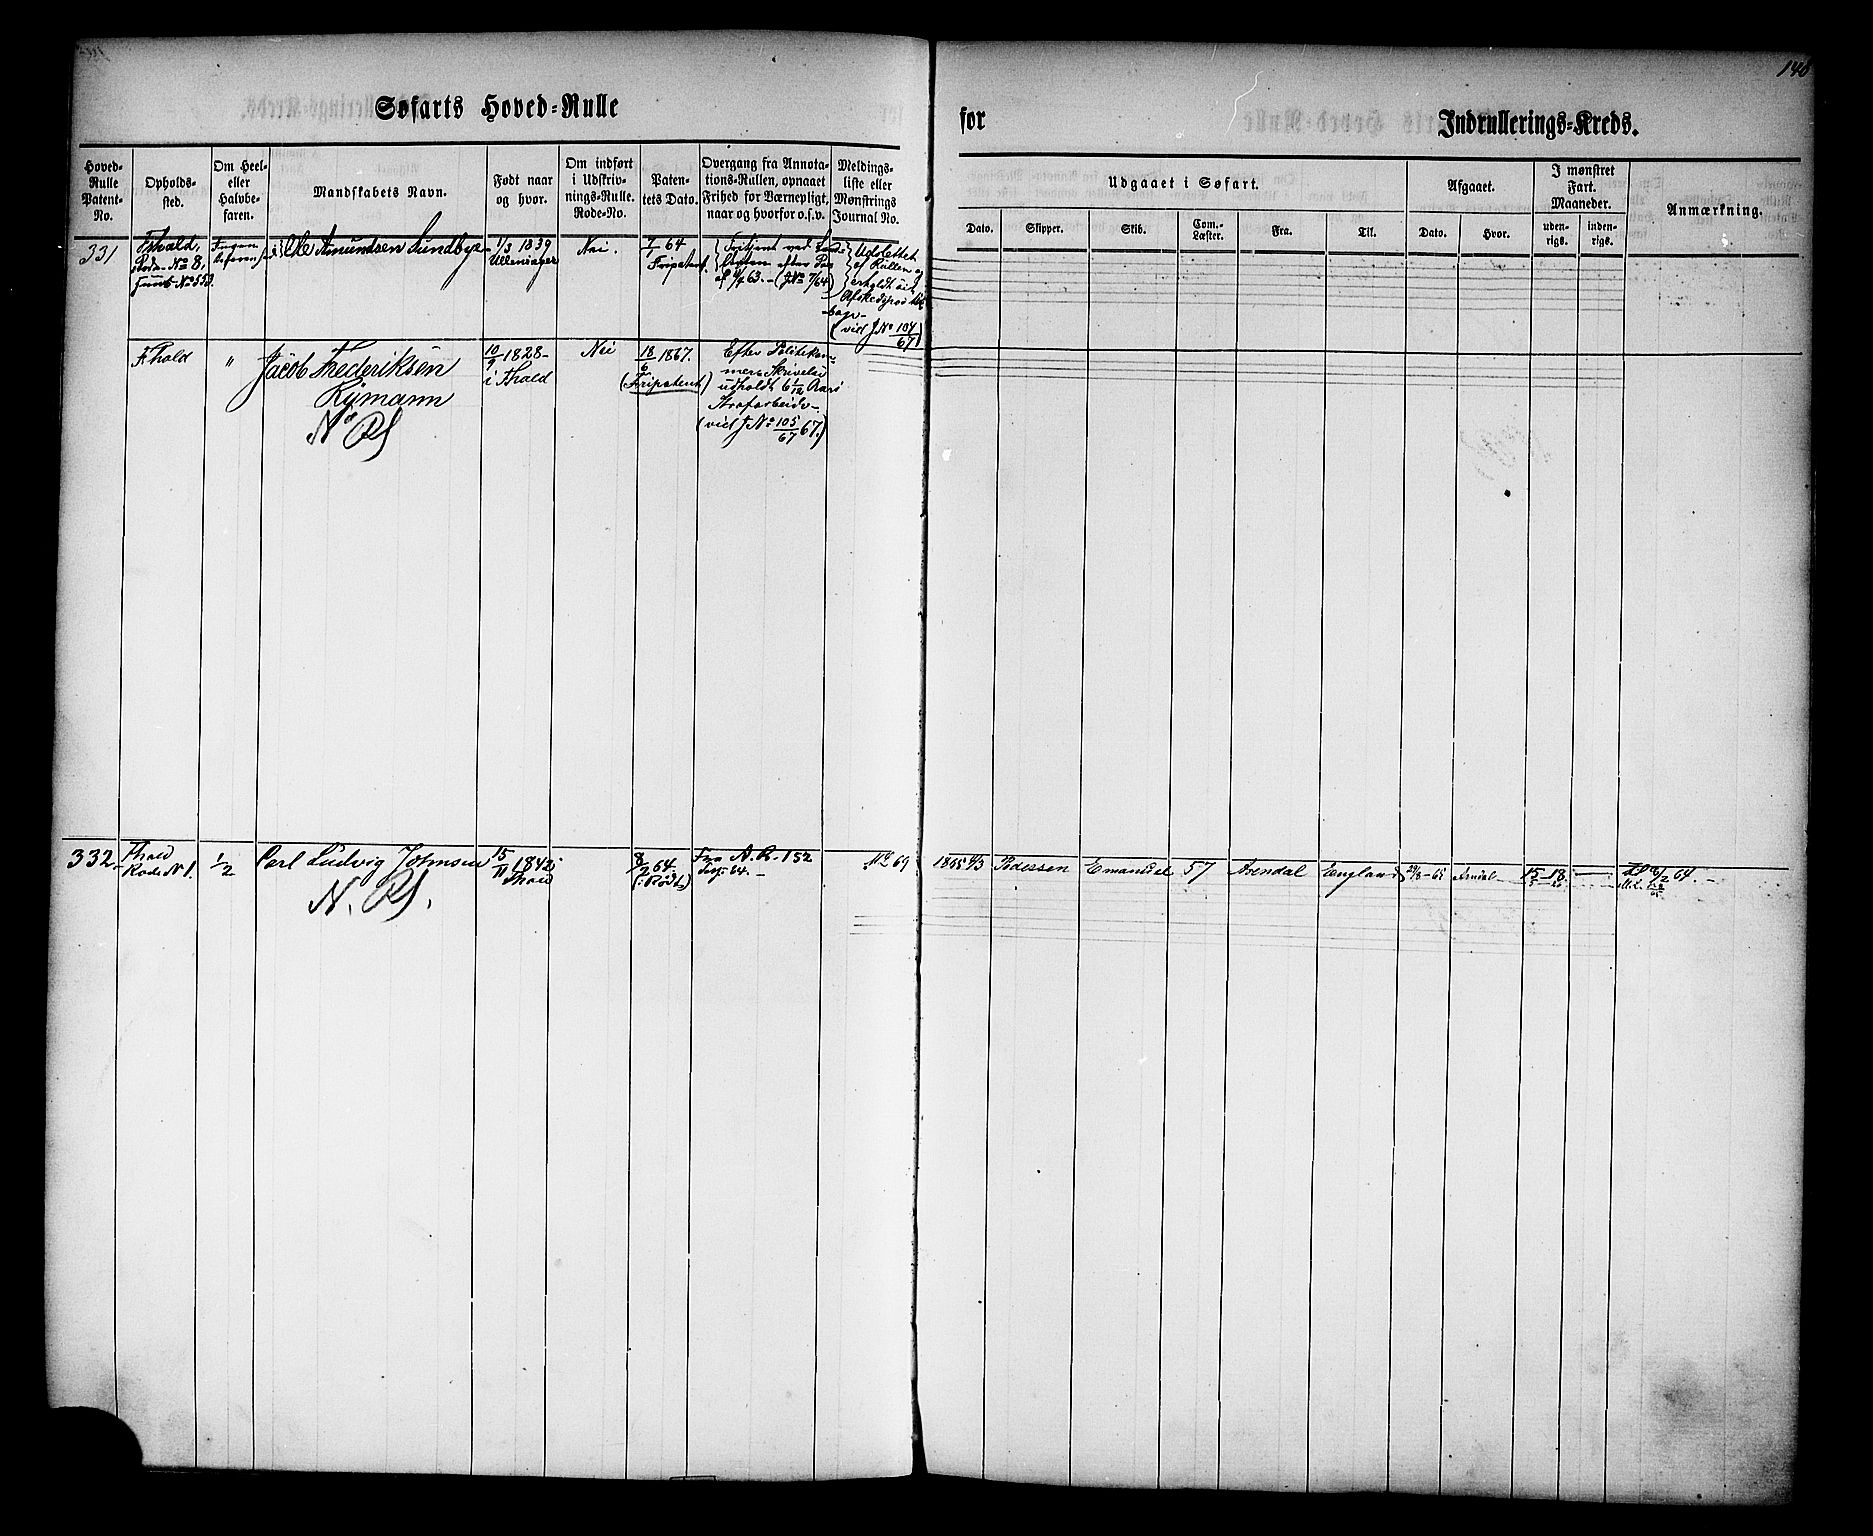 140
Søfarts Hoved-Rulle
for
Indrullerings-Kreds.
Hoved-Rulle Patent-No.
Opholds-sted.
Om Heel- eller Halvbe-faren.
Mandskabets Navn.
Født naar og hvor.
Om indført i Udskriv-nings-Rulle. Rode-No.
Paten-tets Dato.
Overgang fra Annota-tions-Rullen, opnaaet Frihed for Værnepligt, naar og hvorfor o.s.v.
Meldings-liste eller Mønstrings Journal No.
Udgaaet i Søfart.
Dato.
Skipper.
Skib.
Com.-Læster.
Fra.
Til.
Afgaaet.
Dato.
Hvor.
I mønstret Fart. Maaneder.
uden-rigs.
inden-rigs.
Anmærkning.
331
Fhald,
Rode-No 8,
Huus-No 553.
Ingen
Ole Amundsen Sundbye
1/3 1839
Ullensager
Nei.
7/64
Fripatent.
Fritjent ved
efter
63. - (JNo 7/64)
Udslettet
af Rullen
erholdt
(vid JNo 104/67)
Fhald
"
Jacob Frederiksen
Rÿmann
No RS
10/9 1828-
i Fhald
Nei
18/6 1867.
(Fripatent)
Efter Politikam-
mers Skrivelse
udholdt 6 1/12 Aars
Strafarbeide
(vid JNo 105/67 67.)
332
Fhald
Rode N 1.
1/2
Carl Ludvig Johnsen
N. RS.
15/11 1842
Fhald
8/2 64
Fra A.R. 152
64. -
No 69
1865
Emanuel
57
Arendal
England
65
Arendal
15
18
64.